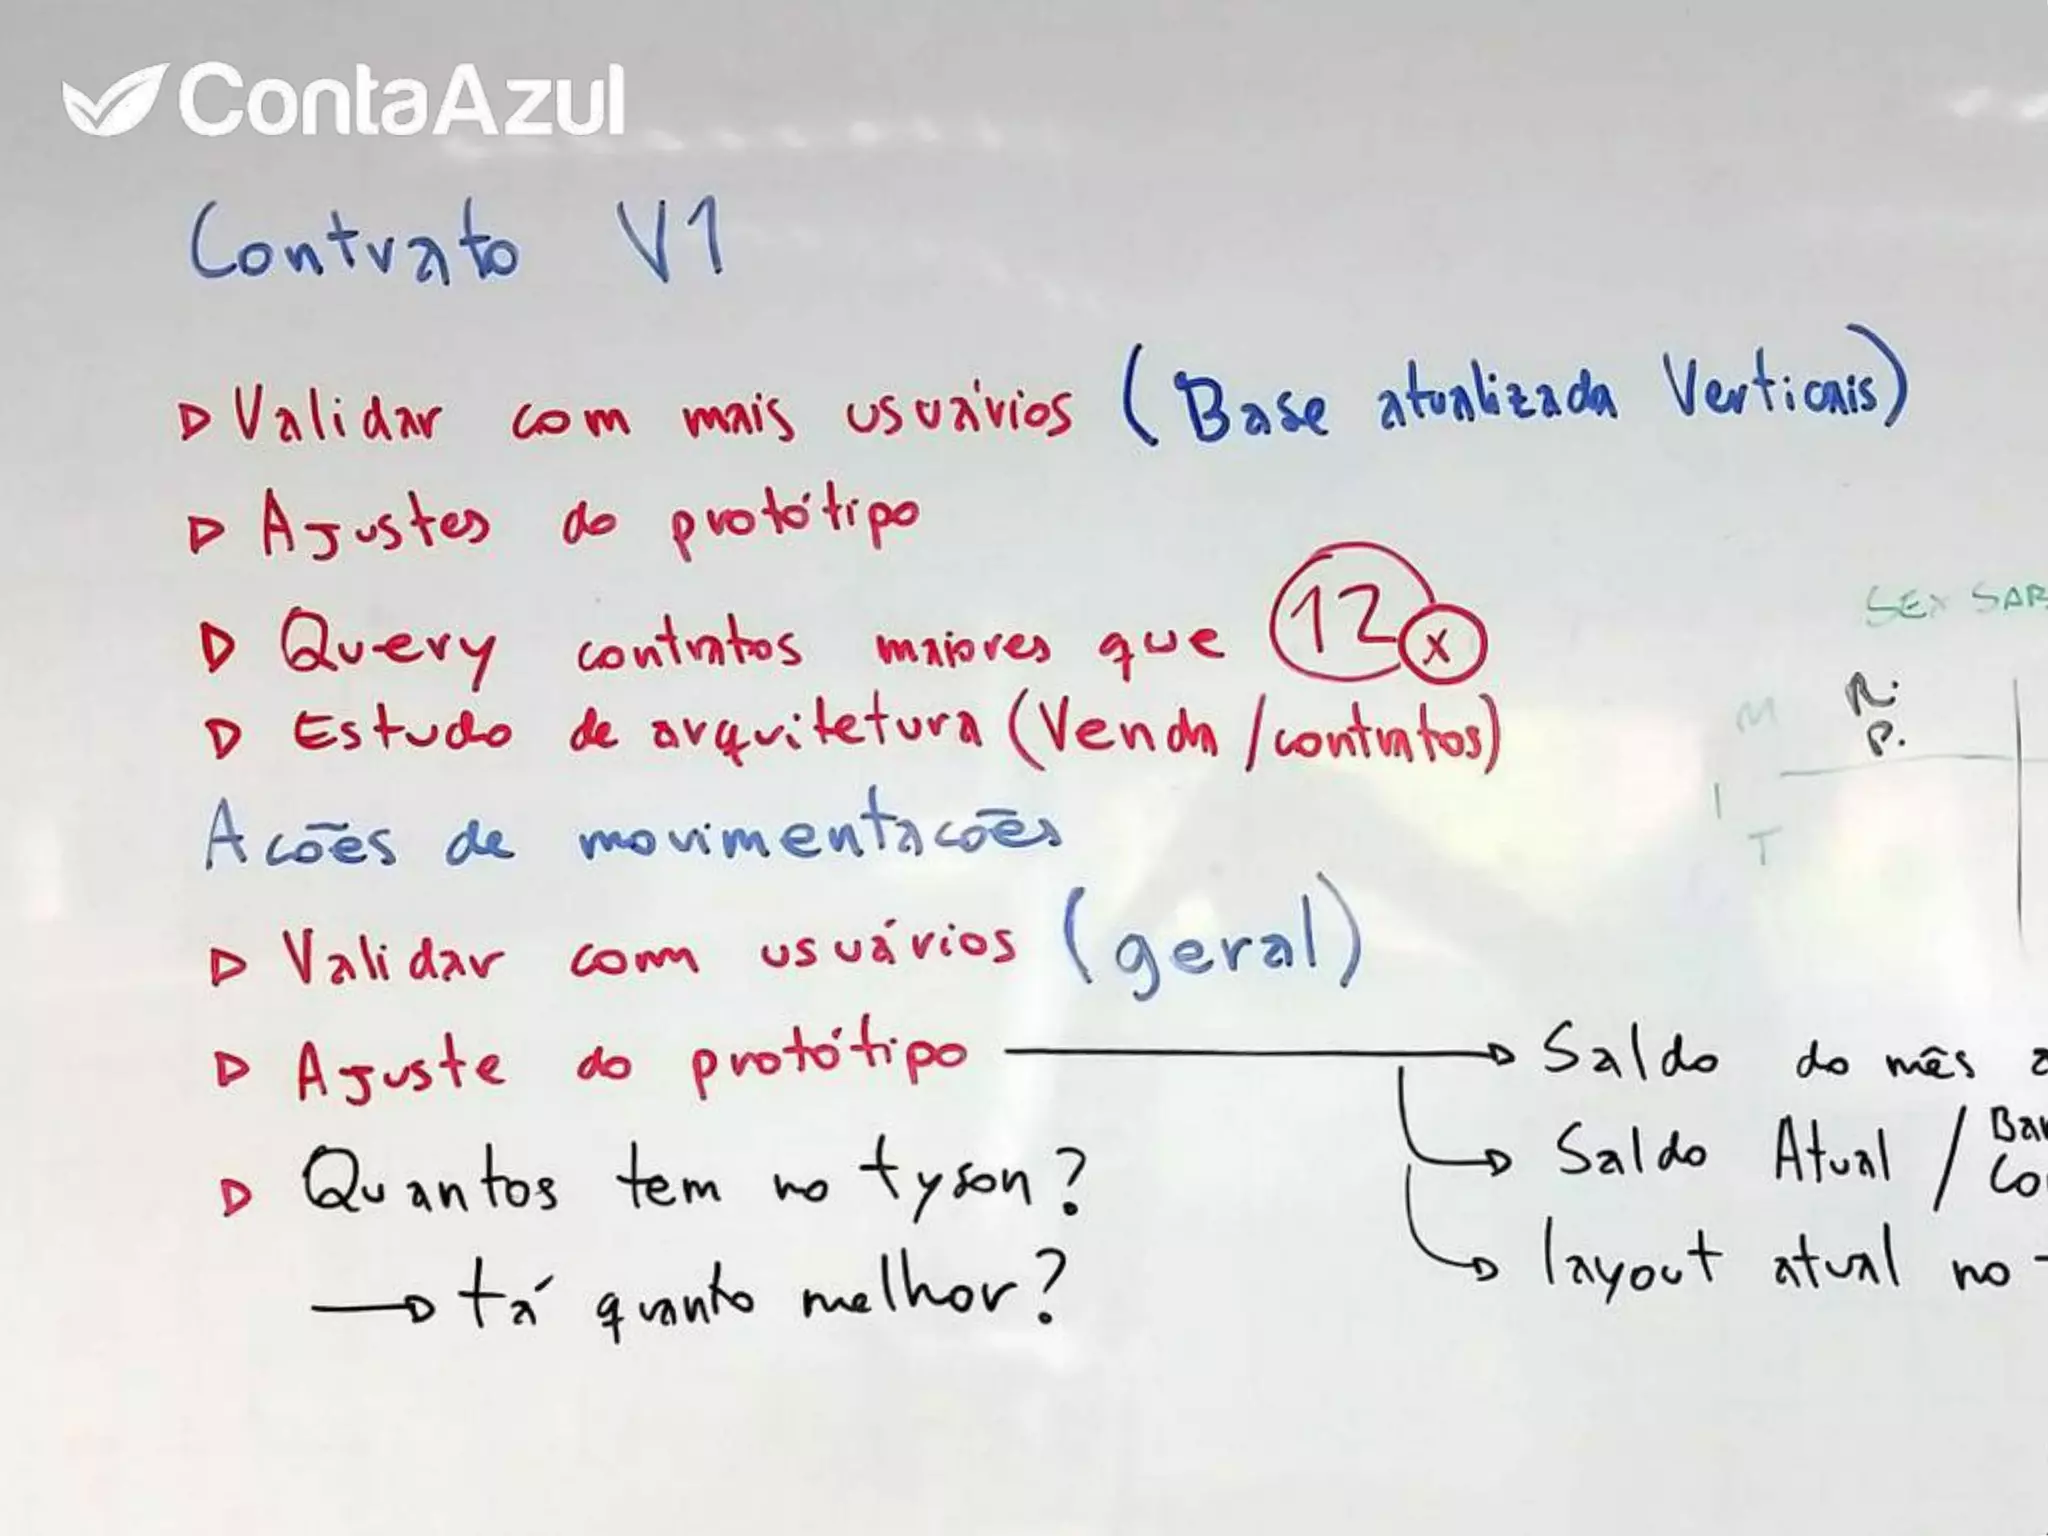 ContaAzul
Contrato V1
Validar com mais usuários (Base atualizada Verticais)
Ajustes do protótipo
Query contratos maiores que 12 x
Estudo de arquitetura (Venda / contratos)
Acões de movimentacões
Validar com usuários (geral)
Ajuste do protótipo
Saldo do mês a
Saldo Atual /
layout atual no
Quantos tem no tyson?
tá quanto melhor?
SEX SAB
M
R.
P.
T